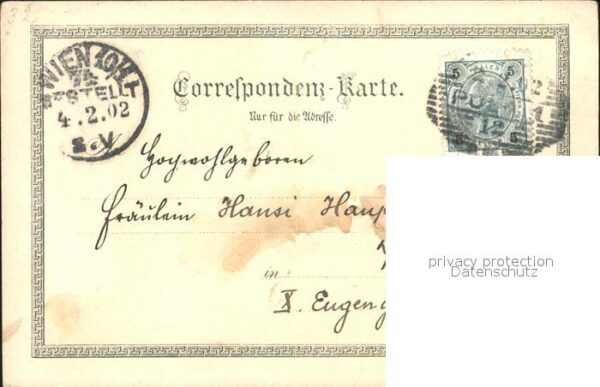 32
WIEN 10/1
75
BESTELLT
4.2.02
2.V
Correspondenz-Karte.
Nur für die Adresse.
5 5
5
12
Hochwohlgeboren
Fräulein Hansi Haup
in
X. Eugeng
privacy protection
Datenschutz